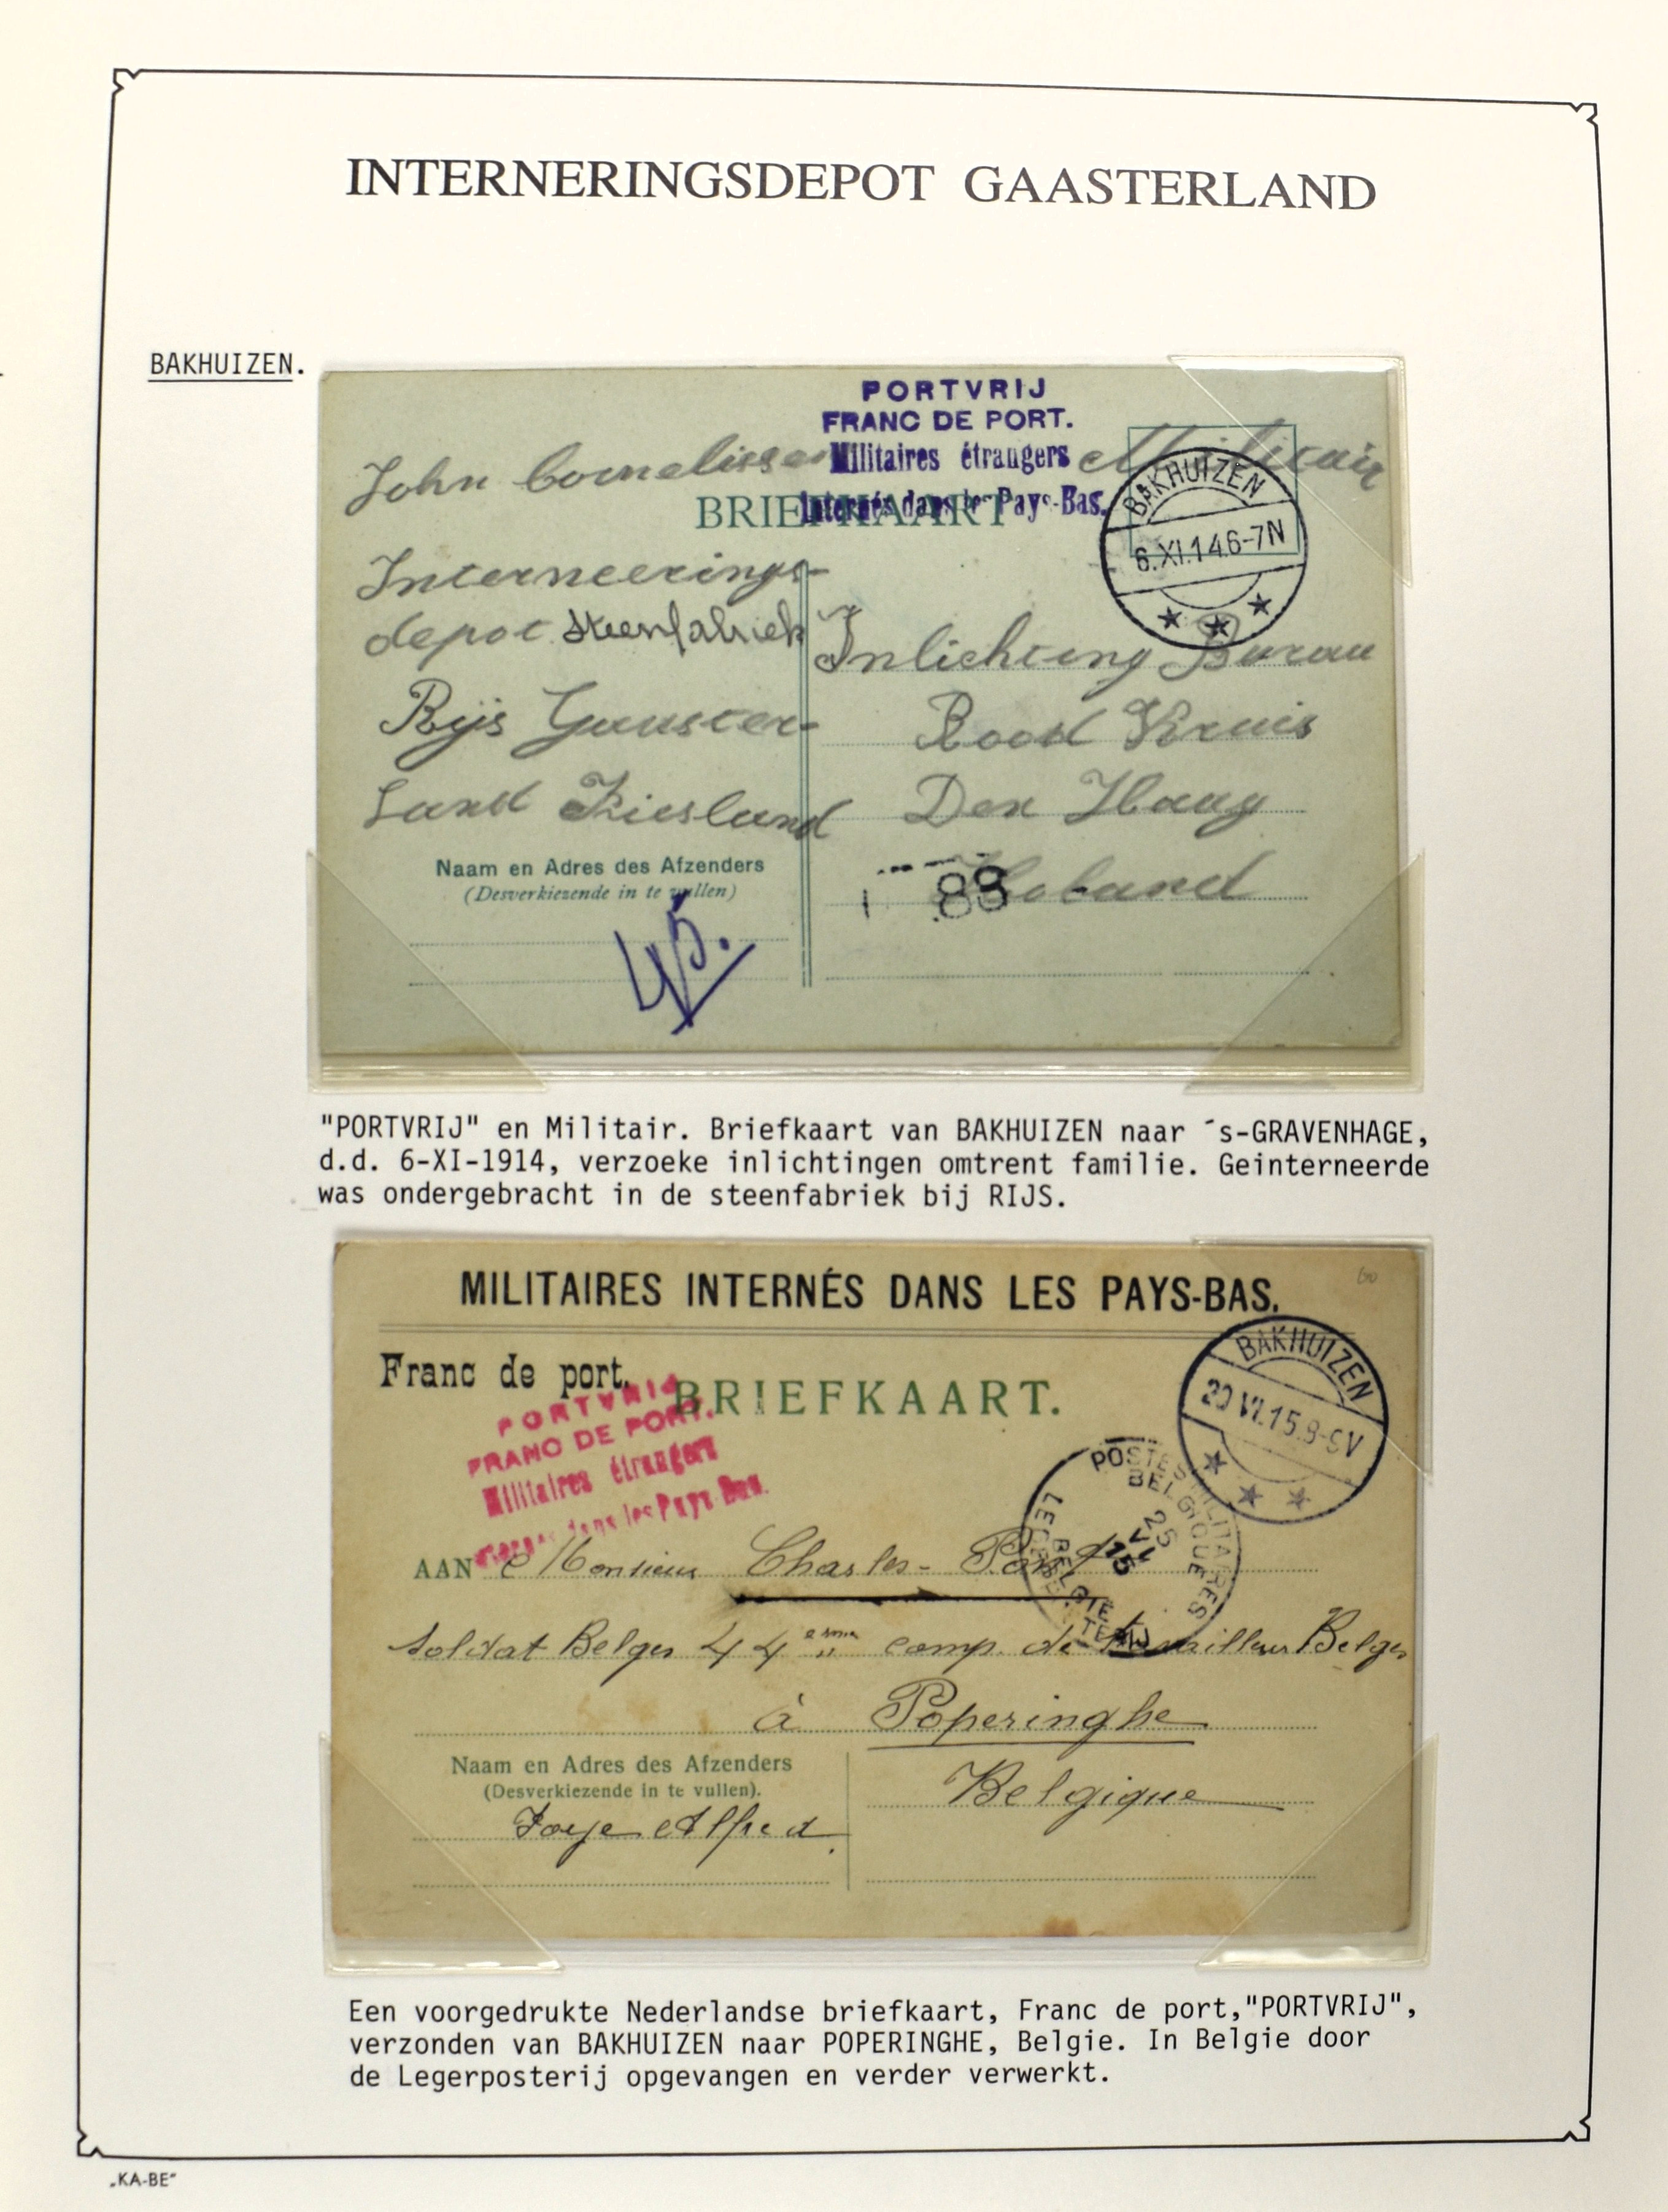 INTERNERINGSDEPOT GAASTERLAND
BAKHUIZEN.
PORTVRIJ
FRANC DE PORT.
Militaires étrangers
Internés dans les Pays-Bas.
John Cornelissen Militair
BRIEFKAART
BAKHUIZEN
6.XI.14.6-7N
Interneerings-
depot steenfabriek
Rijs Gaaster-
Land Friesland
Inlichting Burau
Rood Kruis
Den Haag
Holand
88
Naam en Adres des Afzenders
(Desverkiezende in te vullen)
45.
"PORTVRIJ" en Militair. Briefkaart van BAKHUIZEN naar ´s-GRAVENHAGE,
d.d. 6-XI-1914, verzoeke inlichtingen omtrent familie. Geinterneerde
was ondergebracht in de steenfabriek bij RIJS.
MILITAIRES INTERNÉS DANS LES PAYS-BAS.
60
Franc de port.
BRIEFKAART.
PORTVRIJ
FRANC DE PORT.
Militaires étrangers
dans les Pays Bas.
BAKHUIZEN
20 VI.15.8-9V
POSTES MILITAIRES
BELGIQUE
25
VI
15
AAN Monsieur Charles
Soldat Belges 44 comp. de travailleur Belges
à Poperinghe
Belgique
Naam en Adres des Afzenders
(Desverkiezende in te vullen).
Joye Alfred
Een voorgedrukte Nederlandse briefkaart, Franc de port,"PORTVRIJ",
verzonden van BAKHUIZEN naar POPERINGHE, Belgie. In Belgie door
de Legerposterij opgevangen en verder verwerkt.
„KA-BE"